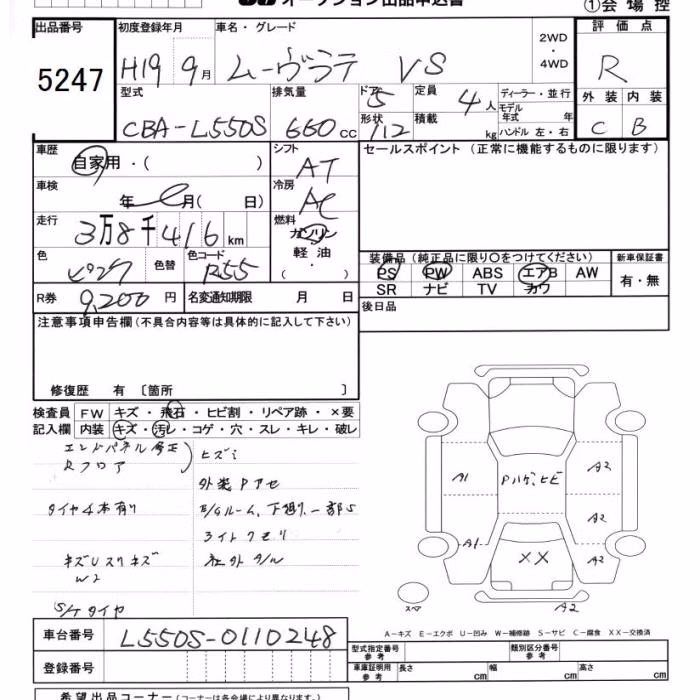 オークション出品申込書
①会場控
出品番号 初度登録年月 車名・グレード 2WD・4WD 評価点
5247 H19 9月 ムーヴラテ VS R
型式 排気量 ドア 5 定員 4人 ディーラー・並行 外装 内装
CBA-L550S 660cc 形状 積載 kg モデル年式 年 ハンドル 左・右 C B
車歴 自家用・( ) シフト AT セールスポイント (正常に機能するものに限ります)
車検 年 月( 日) 冷房 AC
走行 3万8千416km 燃料 ガソリン 軽油 ( ・ )
色 ピンク 色替 色コード R55
装備品 (純正品に限り〇をつけてください) 新車保証書
PS PW ABS エアB AW 有・無
SR ナビ TV カワ
R券 9,200円 名変通知期限 月 日 後日品
注意事項申告欄 (不具合内容等は具体的に記入して下さい)
修復歴 有 〔箇所 〕
検査員 FW キズ・飛石・ヒビ割・リペア跡・×要
記入欄 内装 キズ・汚レ・コゲ・穴・スレ・キレ・破レ
エンドパネル修正
Rフロア
外装Pアセ
タイヤ4本有り
E/Gルーム、下廻り、一部S
ライトクモリ
キズUスリキズ
W2
S/Kタイヤ
A1 Pハゲ、ヒビ A2
A2
A1 XX A2
スペア A2
A−キズ E−エクボ U−凹み W−補修跡 S−サビ C−腐食 XX−交換済
車台番号 L550S-0110248
型式指定番号 参考 類別区分番号 参考
登録番号 車庫証明用 参考 長さ cm 幅 cm 高さ cm
希望出品コーナー (コーナーは各会場により異なります。)